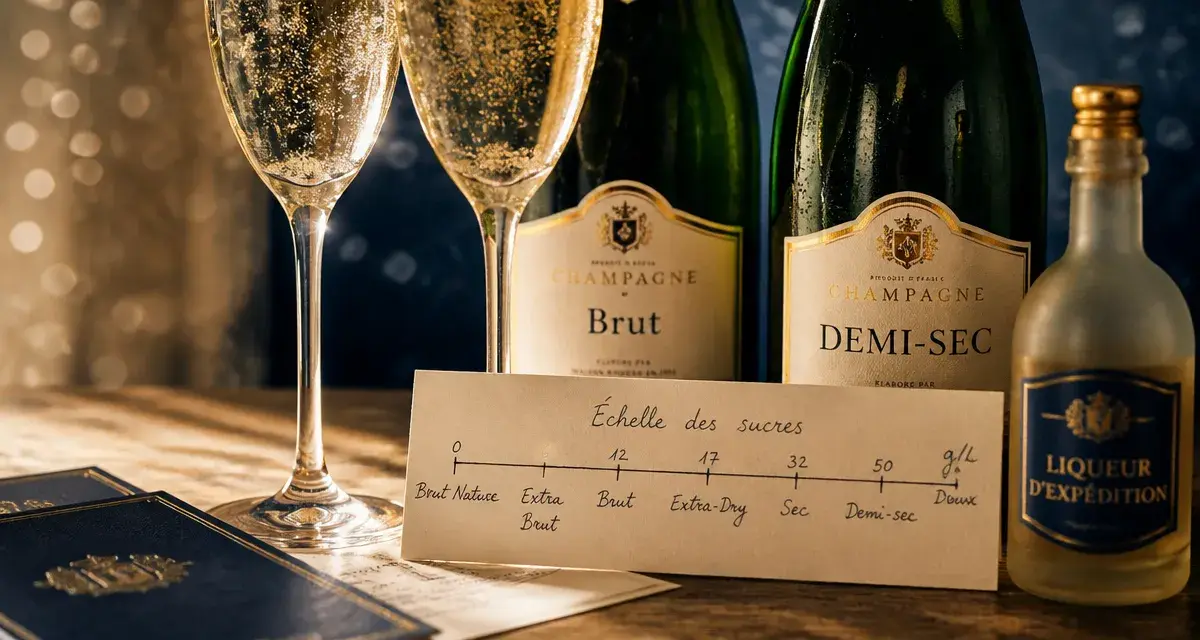 CHAMPAGNE
Brut
ÉLABORÉ PAR
CHAMPAGNE
DEMI-SEC
ÉLABORÉ PAR
Échelle des sucres
0 12 17 32 50 g/L
Brut Nature Extra Brut Extra-Dry Sec Demi-sec Doux
Brut
LIQUEUR
D'EXPÉDITION